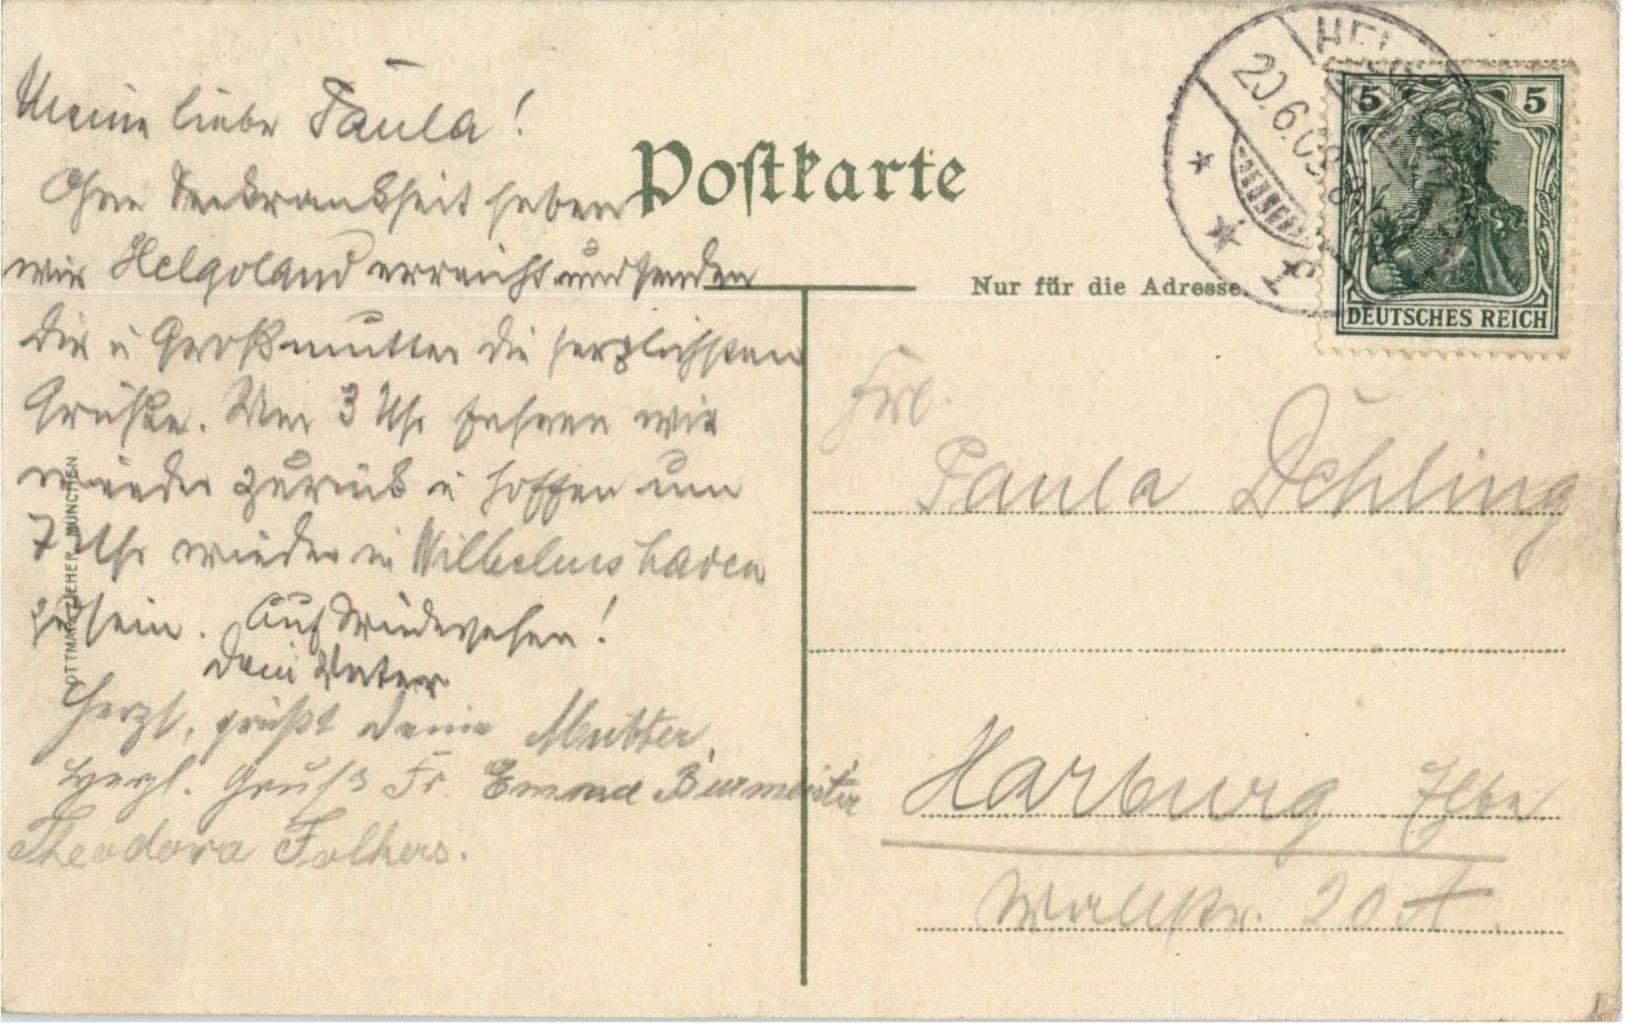 Meine liebe Paula!
Ohne Seekrankheit haben
wir Helgoland erreicht und senden
Dir u Großmutter die herzlichsten
Grüße. Um 3 Uhr fahren wir
wieder zurück u hoffen um
7 Uhr wieder in Wilhelmshaven
zu sein. Auf Wiedersehen!
Dein Vater
Herzl. grüßt Deine Mutter.
Herzl. Gruß Fr. Emma Burmeister
Theodora Folkers.
OTTMAR ZIEHER, MÜNCHEN.
Postkarte
Nur für die Adresse.
20.6.09. 8
5 5
DEUTSCHES REICH
Frl.
Paula Dehling
Harburg Elbe
Wallstr. 20 A.